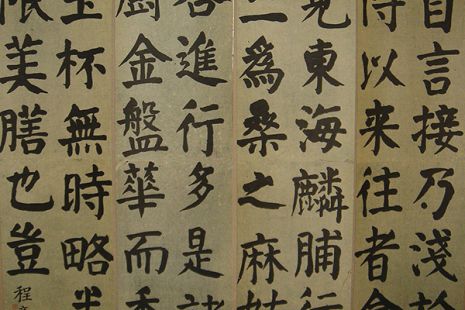 自言接乃淺於
以来往者會
見東海麟脯行
為桑之麻姑
進行多是諸
厨金盤華而香
玉杯無時略半
限美膳也豈
程